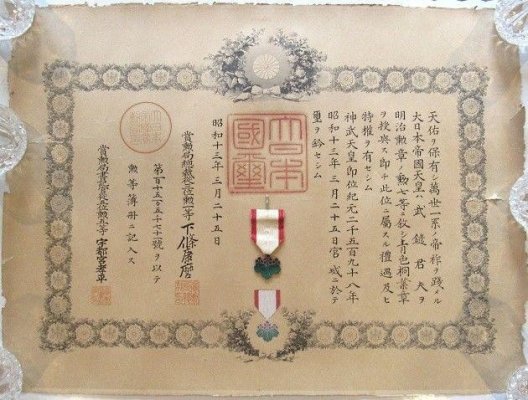 天佑ヲ保有シ萬世一系ノ帝祚ヲ踐メル
大日本帝國天皇ハ武 君夫ヲ
明治勲章ノ勲七等ニ叙シ青色桐葉章
ヲ授與ス即チ此位ニ屬スル禮遇及ヒ
特權ヲ有セシム
神武天皇即位紀元二千五百九十八年
昭和十三年三月二十五日宮城ニ於テ
璽ヲ鈐セシム
大日本國璽
昭和十三年三月二十五日
賞勲局總裁 勲一等下條康麿
第百十五万五千七十 號ヲ以テ
勲等簿冊ニ記入ス
賞勲局書記官 宇都宮孝平